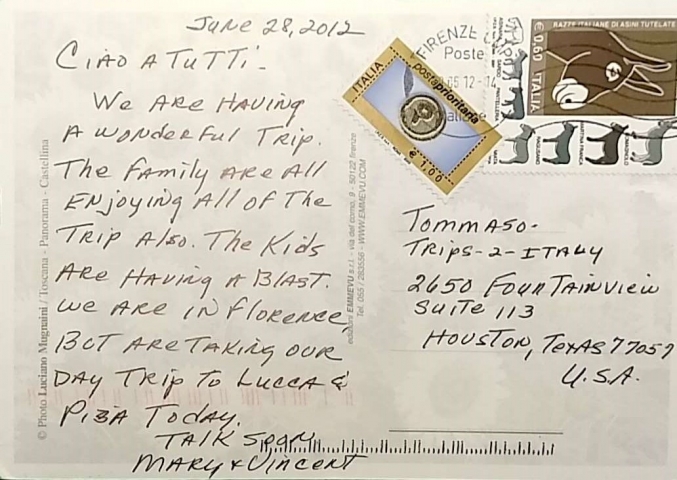 June 28, 2012
CIAO A TUTTI -
We ARE HAVING
A WONDERFUL TRIP.
The FAMILY ARE ALL
ENJOYING ALL OF THE
TRIP ALSO. THE KIDS
ARE HAVING A BLAST.
WE ARE IN FLORENCE
BUT ARE TAKING OUR
DAY TRIP TO LUCCA &
PISA TODAY.
TALK SOON
MARY & VINCENT
© Photo Luciano Mugnaini / Toscana - Panorama - Castellina
edizioni EMMEVU s.r.l. - via del corno, 9 - 50122 firenze
Tel. 055 / 283556 - WWW.EMMEVU.COM
FIRENZE
Poste
12-14
ITALIA
postaprioritaria
€ 1,00
RAZZE ITALIANE DI ASINI TUTELATE
€ 0,60
ITALIA
TOMMASO -
TRIPS-2-ITALY
2650 FOUNTAINVIEW
SUITE 113
HOUSTON, TEXAS 77057
U.S.A.